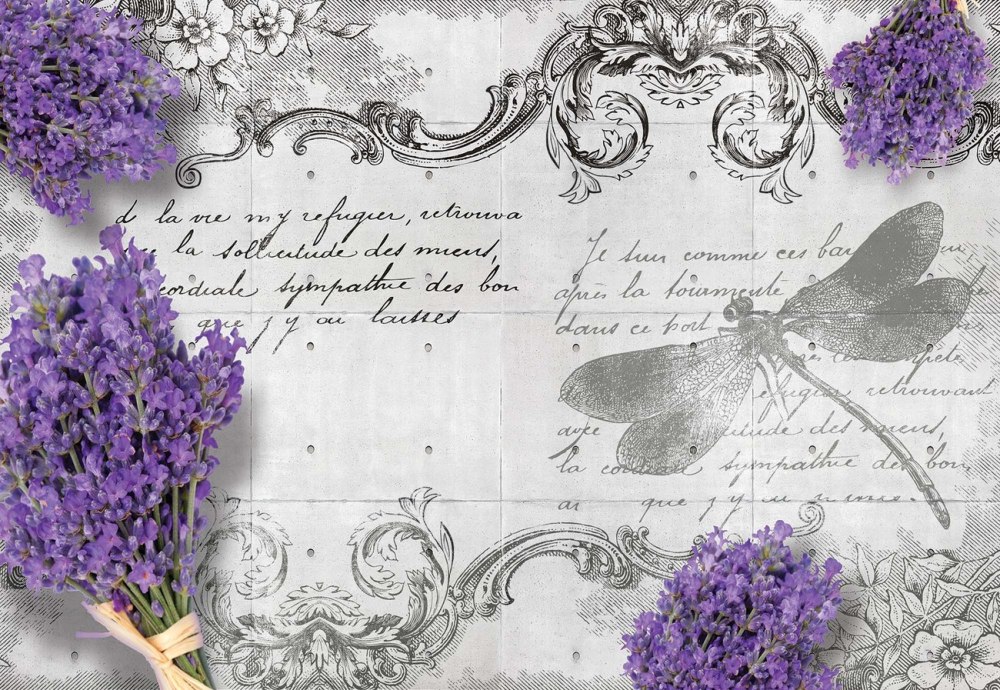 de la vie m'y refugier, retrouva
la sollicitude des miens,
cordiale sympathie des bon
que j'y ai laissés
Je suis comme ces bar
après la tourmente
dans ce port
refugier retrouvant
avec sollicitude des miens,
la cordiale sympathie des bons
que j'y ai